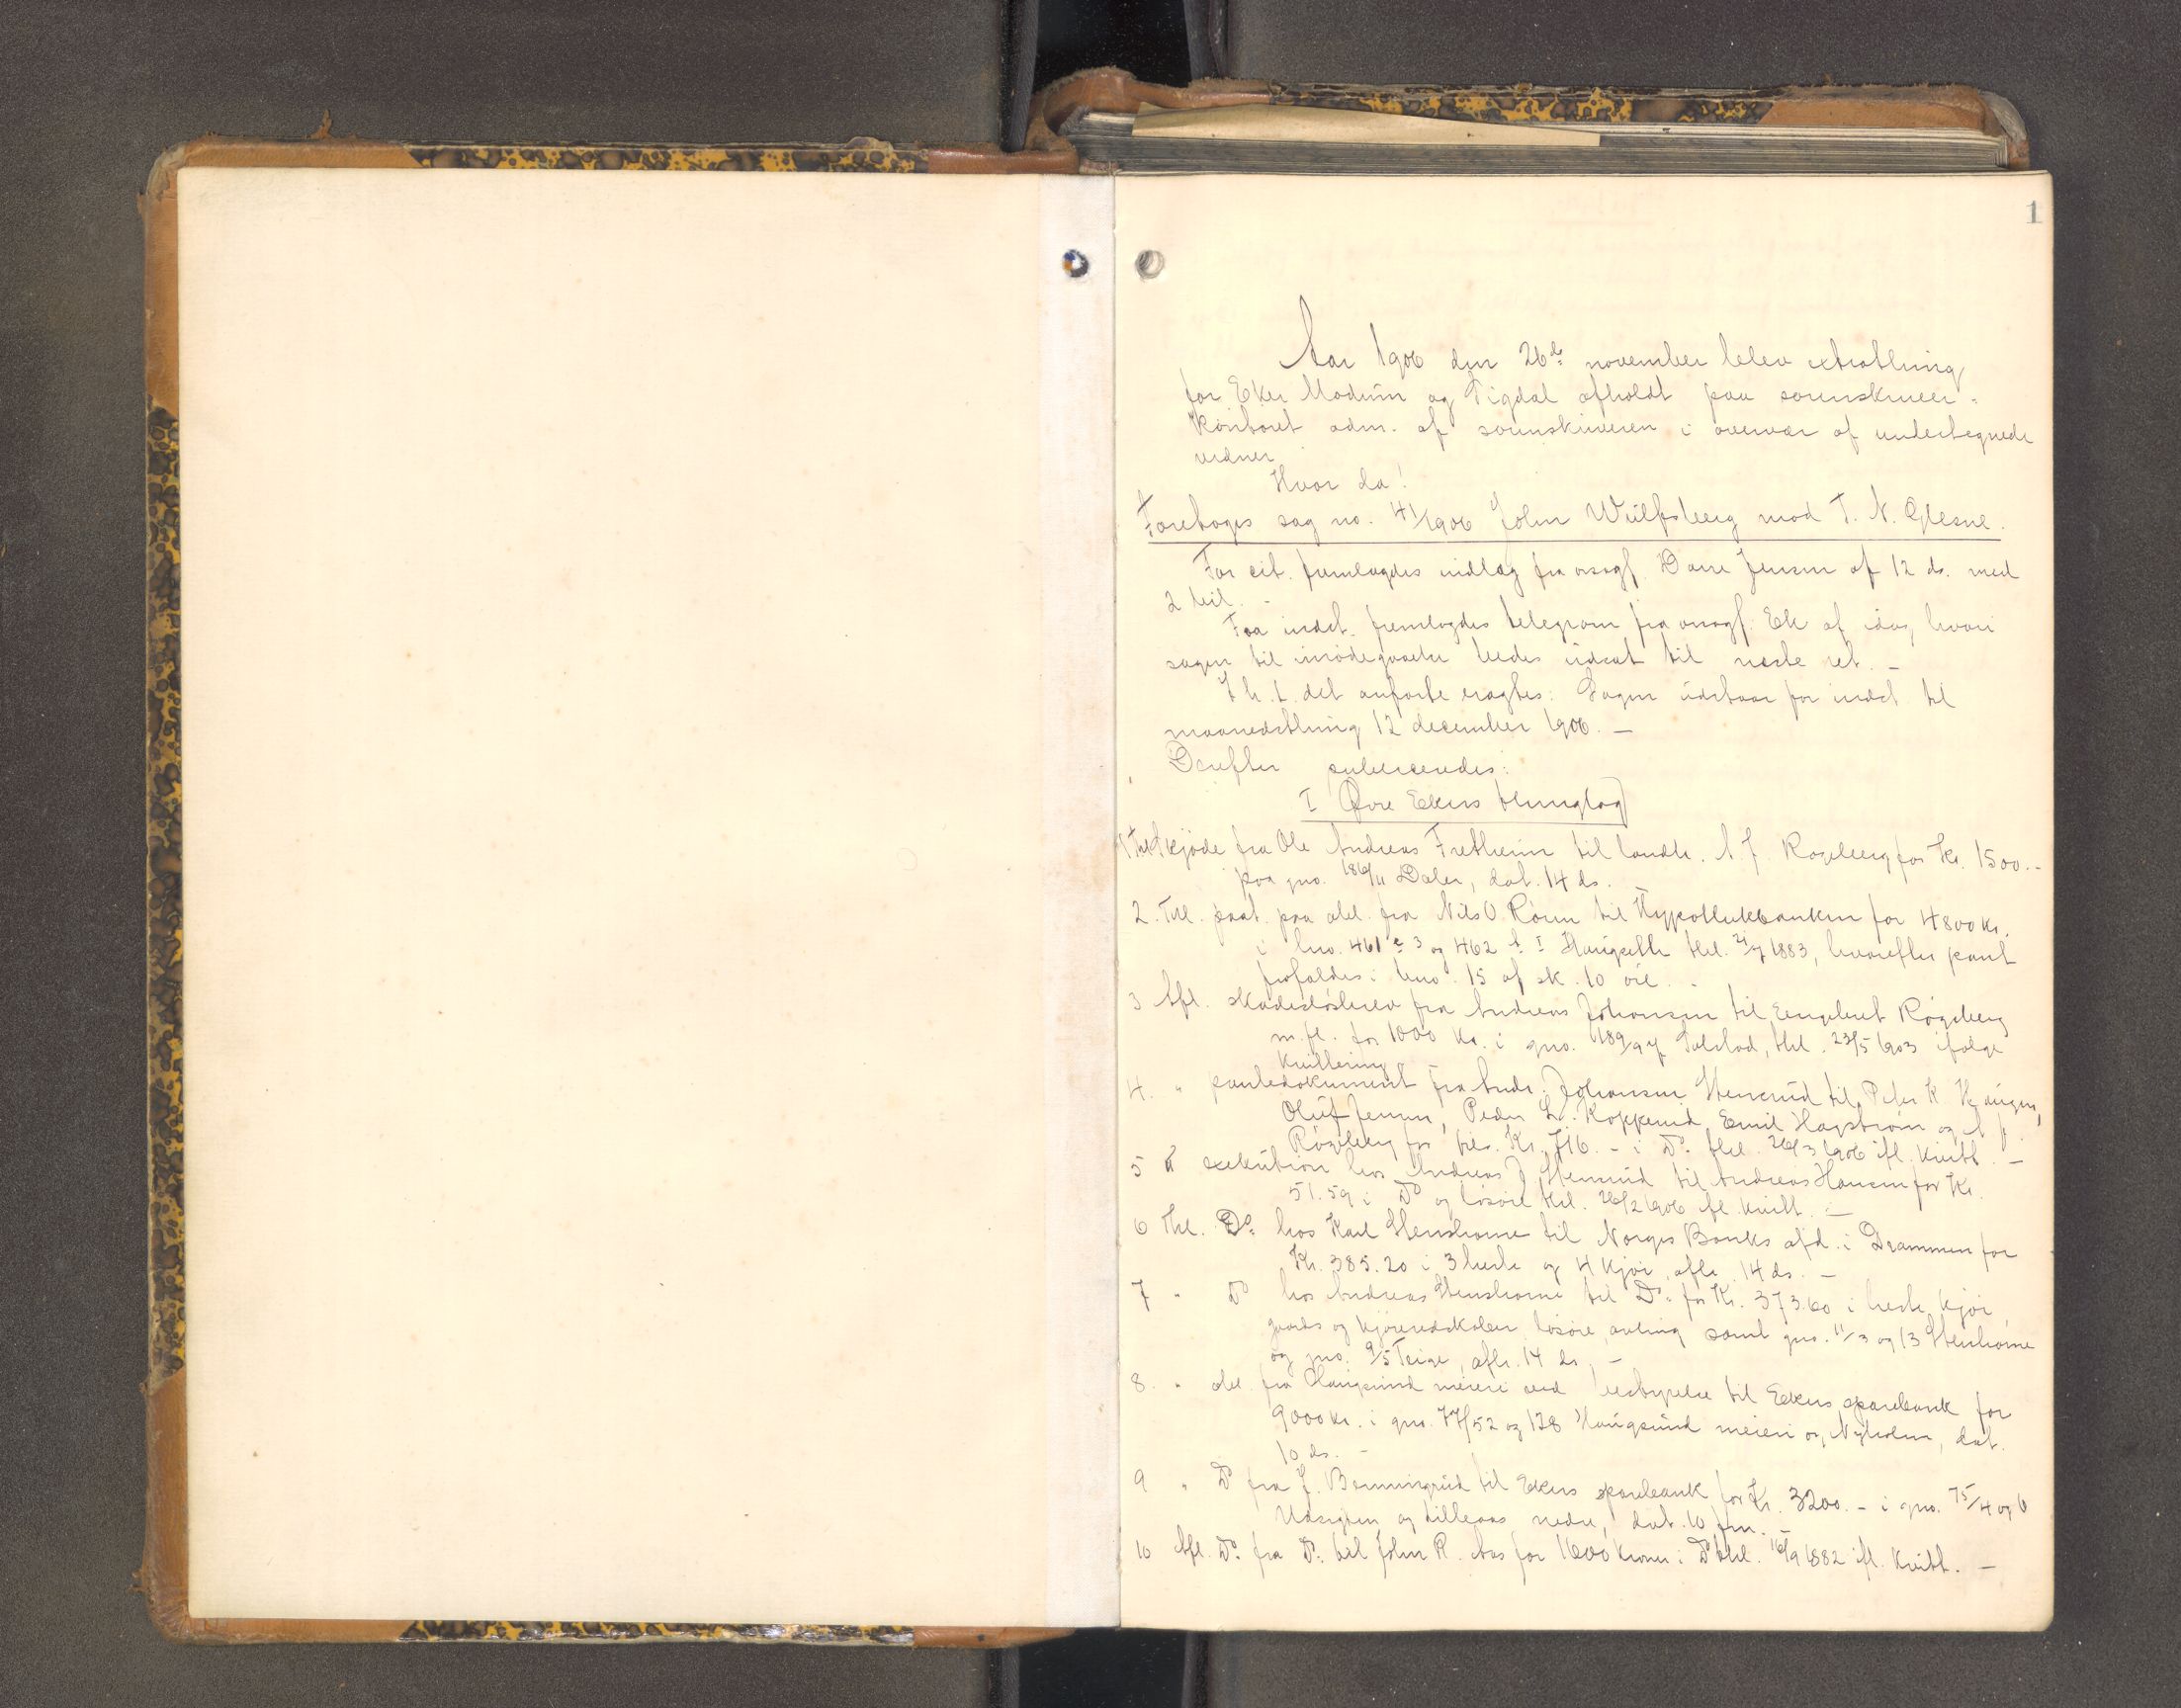 1
Aar 1906 den 26de november blev extrathing
for Eker Modum og Sigdal afholdt paa sorenskriver-
kontoret adm. af sorenskriveren i overvær af undertegnede
vidner
Hvor da!
Foretoges sag no. 41/1906 John Wulfsberg mod T. N. Glesne.
For cit. fremlagdes indlæg fra orsagf. Dorre Jensen af 12 ds. med
2 bil. -
Fra indst. fremlagdes telegram fra orsagf. Ek af idag, hvori
sagen til imødegaaelse bedes udsat til næste ret. -
I h. t. det anførte eragtes: Sagen udstaar for indst. til
maanedsthing 12 december 1906. -
Derefter publiceredes:
I Øvre Ekers thinglag
1 Thl. skjøde fra Ole Andreas Fretheim til landh. A. J. Røgeberg for Kr. 1500.-
paa gno. 186/11 Daler, dat. 14 ds. -
2. Thl. paat. paa obl. fra Nils O. Roren til Hypothekbanken for 4800 kr.
i lno. 461 e 3 og 462 b I Haugseth thl. 21/7 1883, hvorefter pant
frafaldes i bno. 15 af sk. 10 øre. -
3 Afl. skadesløsbrev fra Andreas Johansen til Engebret Røgeberg
m. fl. for 1000 Kr. i gno. 189/9 Solstad, thl. 23/5 1903 ifølge
kvittering -
4. " pantedokument fra Andr. Johansen Stensrud til Peder K. Haugen,
Oluf Jensen, Peder Kr. Kopperud, Emil Hagstrøm og A. J.
Røgeberg for tils. Kr. 716. - i Do. thl. 26/3 1906 ifl. kvitt. -
5 " exekution hos Andreas J. Stensrud til Andreas Hansen for Kr.
51.59 i Do og løsøre thl. 26/2 1906 ifl. kvitt. -
6 Thl. Do. hos Karl Stenshorne til Norges Banks afd. i Drammen for
Kr. 385.20 i 3 heste og 4 kjør, afh. 14 ds. -
7 " Do hos Andreas Stenshorne til Do. for Kr. 373.60 i heste, kjør,
gaards og kjøreredskaber, løsøre, avling samt gno. 11/3 og 13 Stenshorne
og gno. 9/5 Teige, afh. 14 ds. -
8. " obl. fra Haugsund meieri ved bestyrelse til Ekers sparebank for
9000 kr. i gno. 77/52 og 128 Haugsund meieri og Nyholm, dat.
10 ds. -
9 " Do fra J. Bermingrud til Ekers sparebank for Kr. 3200. - i gno. 75/4 og 6
Udsigten og Lilleaas nedre, dat. 10 fm. -
10 Afl. Do. fra Do. til John R. Aas for 1600 kroner i Do thl. 16/9 1882 ifl. kvitt. -